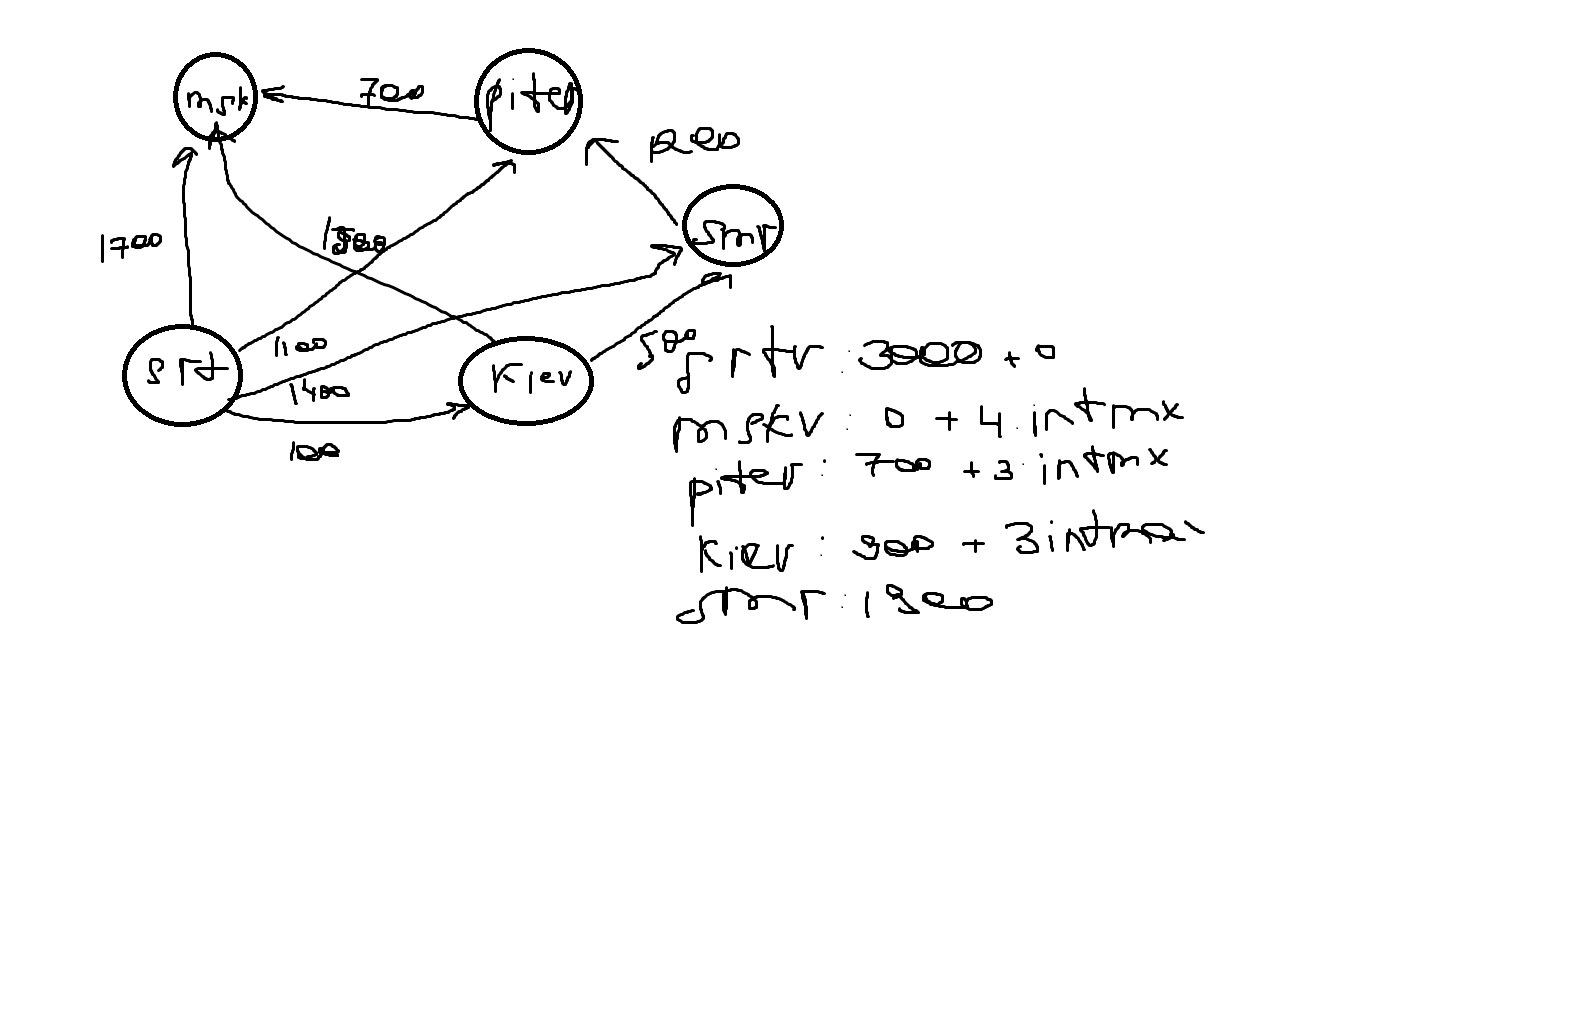 msk
700
piter
smr
1700
srt
1100
1400
100
Kiev
500
srtv : 3000 + 0
mskv : 0 + 4 intmx
piter : 700 + 3 intmx
Kiev : 900 + 3
smr : 1900